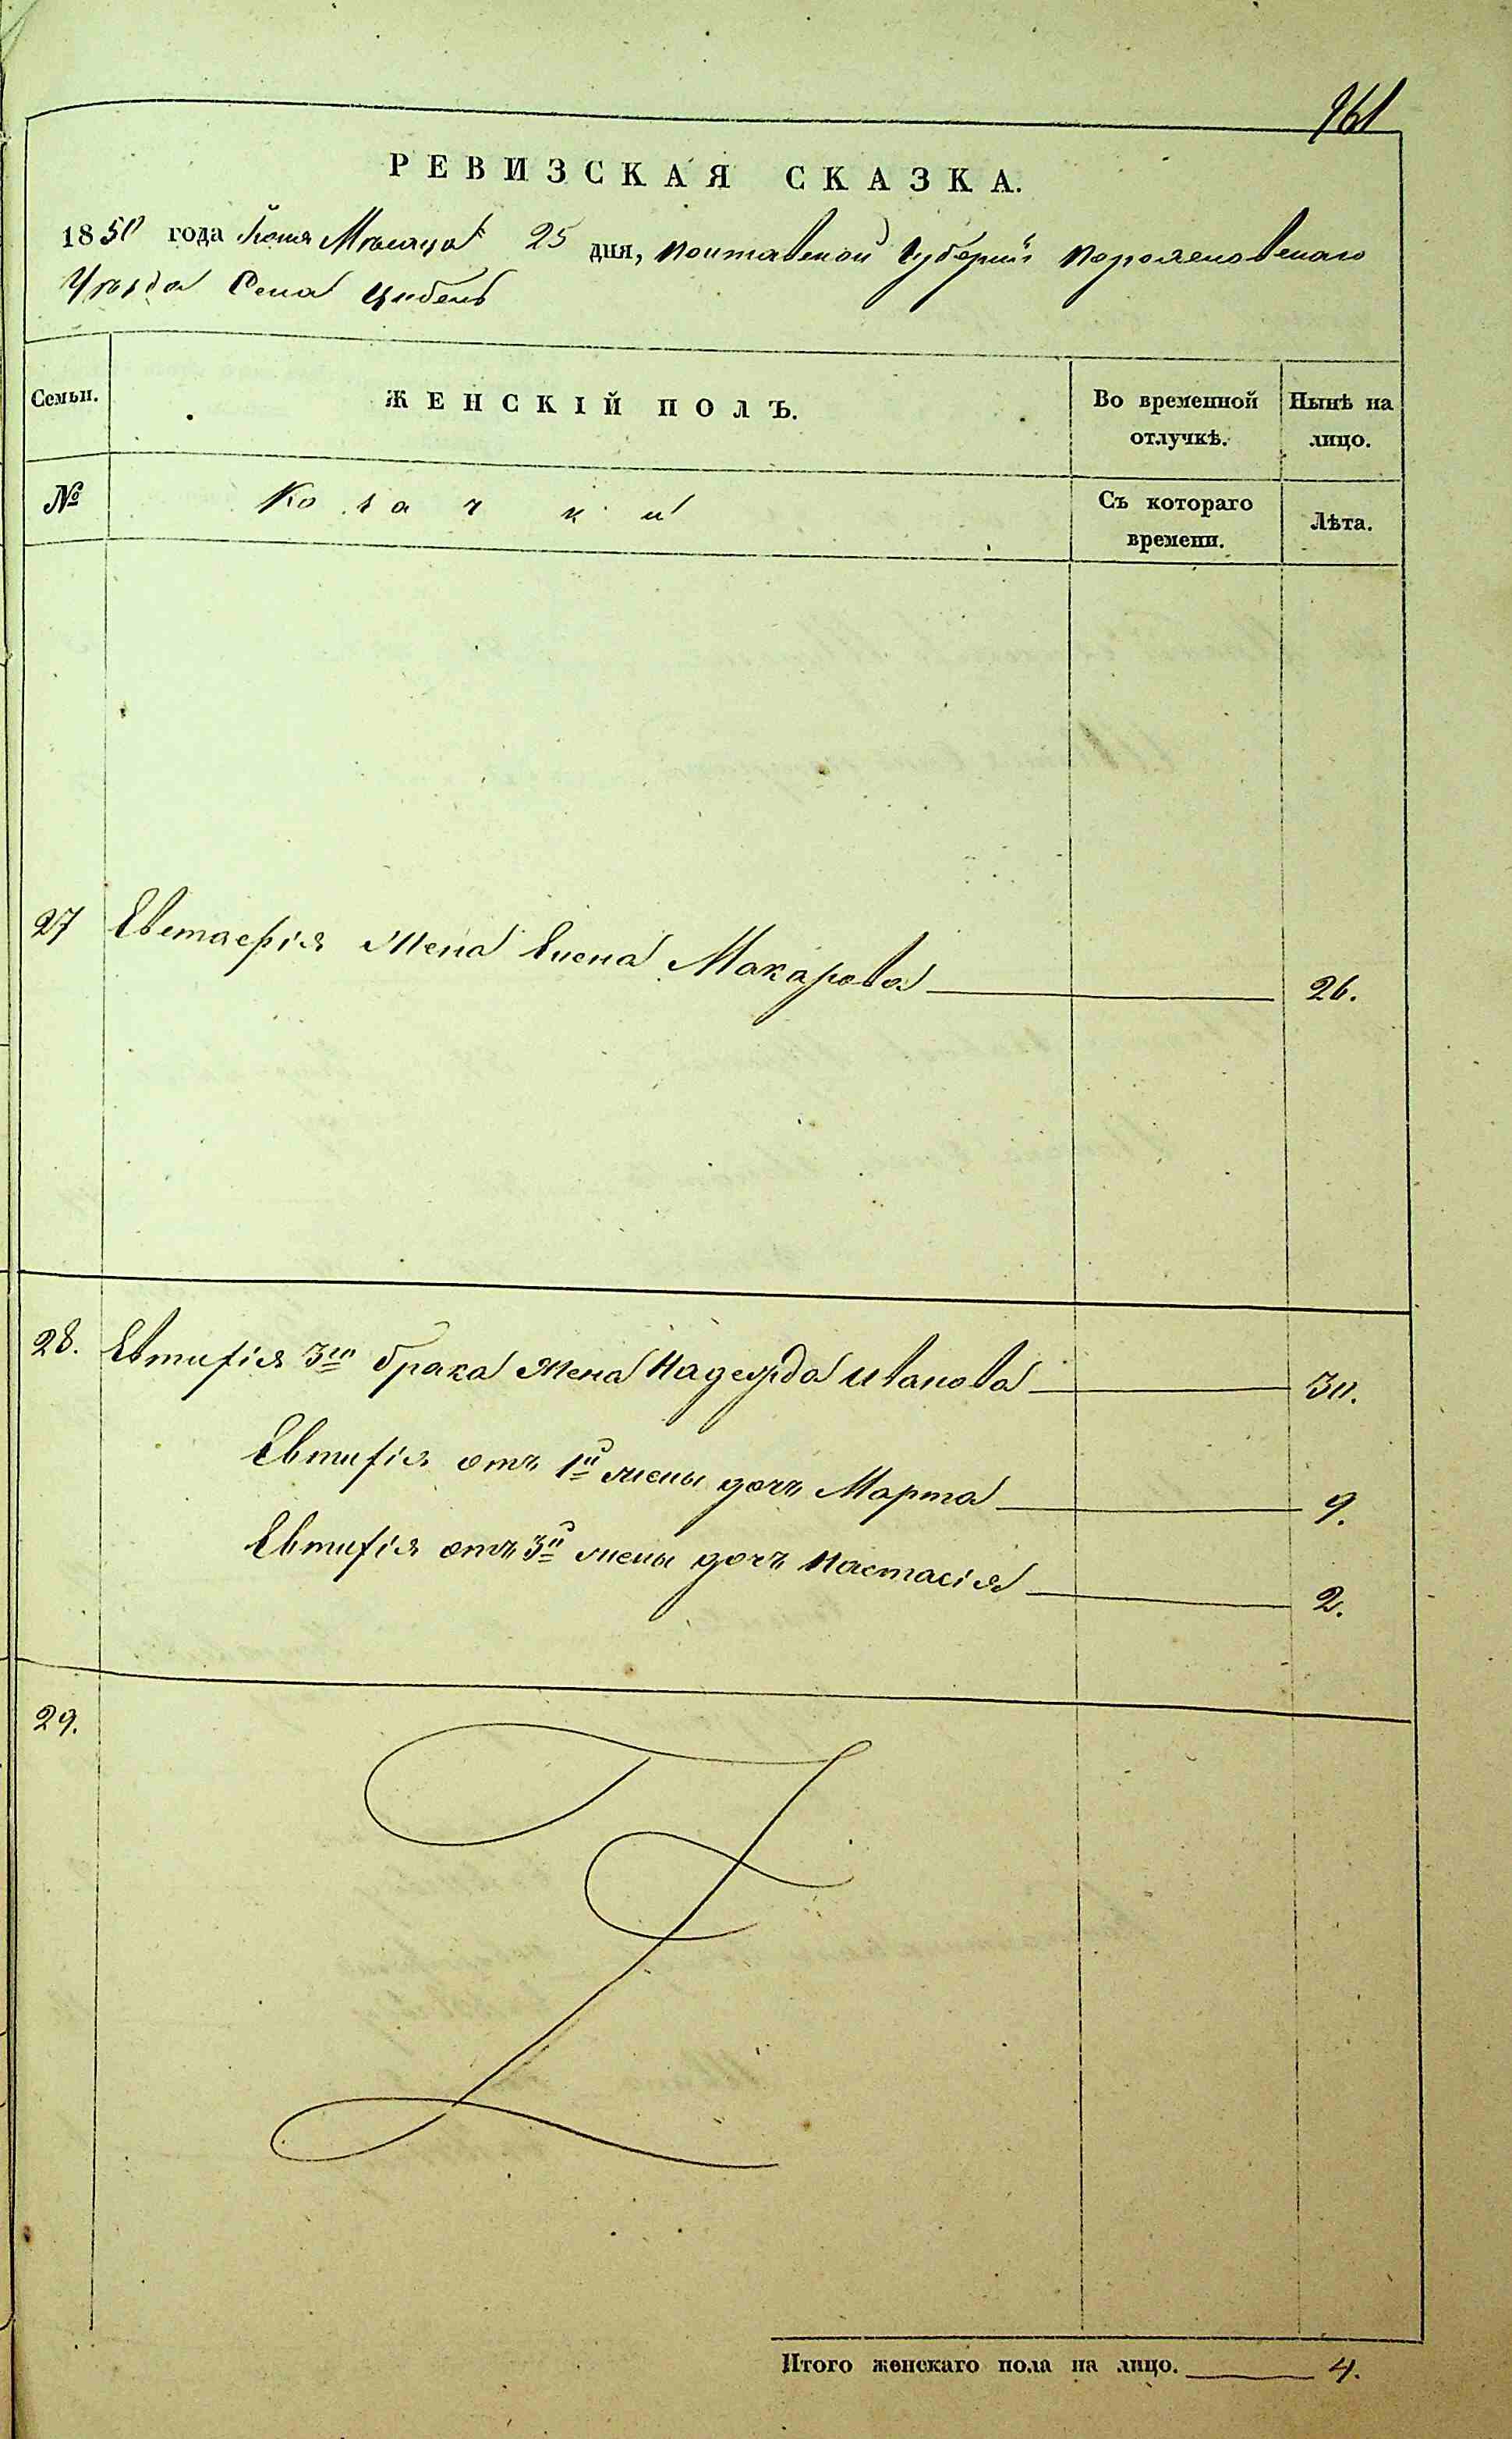 961
РЕВИЗСКАЯ СКАЗКА.
1850 года Іюня Мѣсяца 25 дня, Полтавской Губерніи Переяславскаго
Уѣзда Села Цибель
Семьи.
ЖЕНСКІЙ ПОЛЪ.
Во временной отлучкѣ.
Нынѣ на лицо.
№
Козачки
Съ котораго времени.
Лѣта.
27 Евстафія жена Елена Макарова 26.
28. Евтифія 3го брака жена Надежда Иванова 30.
Евтифія отъ 1й жены дочь Марта 9.
Евтифія отъ 3й жены дочь Настасія 2.
29.
Итого женскаго пола на лицо. 4.